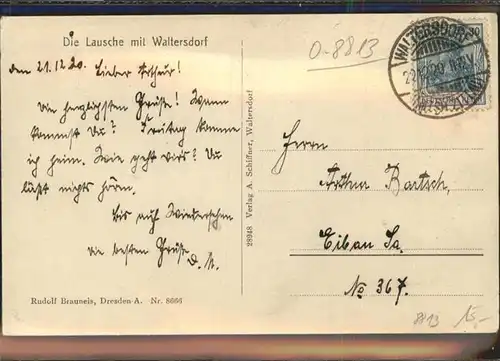 Die Lausche mit Waltersdorf
O-8813
WALTERSDORF
den 21.12.20. Lieber Arthur!
Die herzlichsten Grüße! Wann
kommst Du? Freitag komme
ich heim. Wie geht dirs? Du
läßt nichts hören.
Bis auf Wiedersehen
die besten Grüße
28948 Verlag A. Schiffner, Waltersdorf
Herrn
Arthur Bartsch,
Eibau Sa.
No 367.
Rudolf Brauneis, Dresden-A. Nr. 8666
8813 15,-